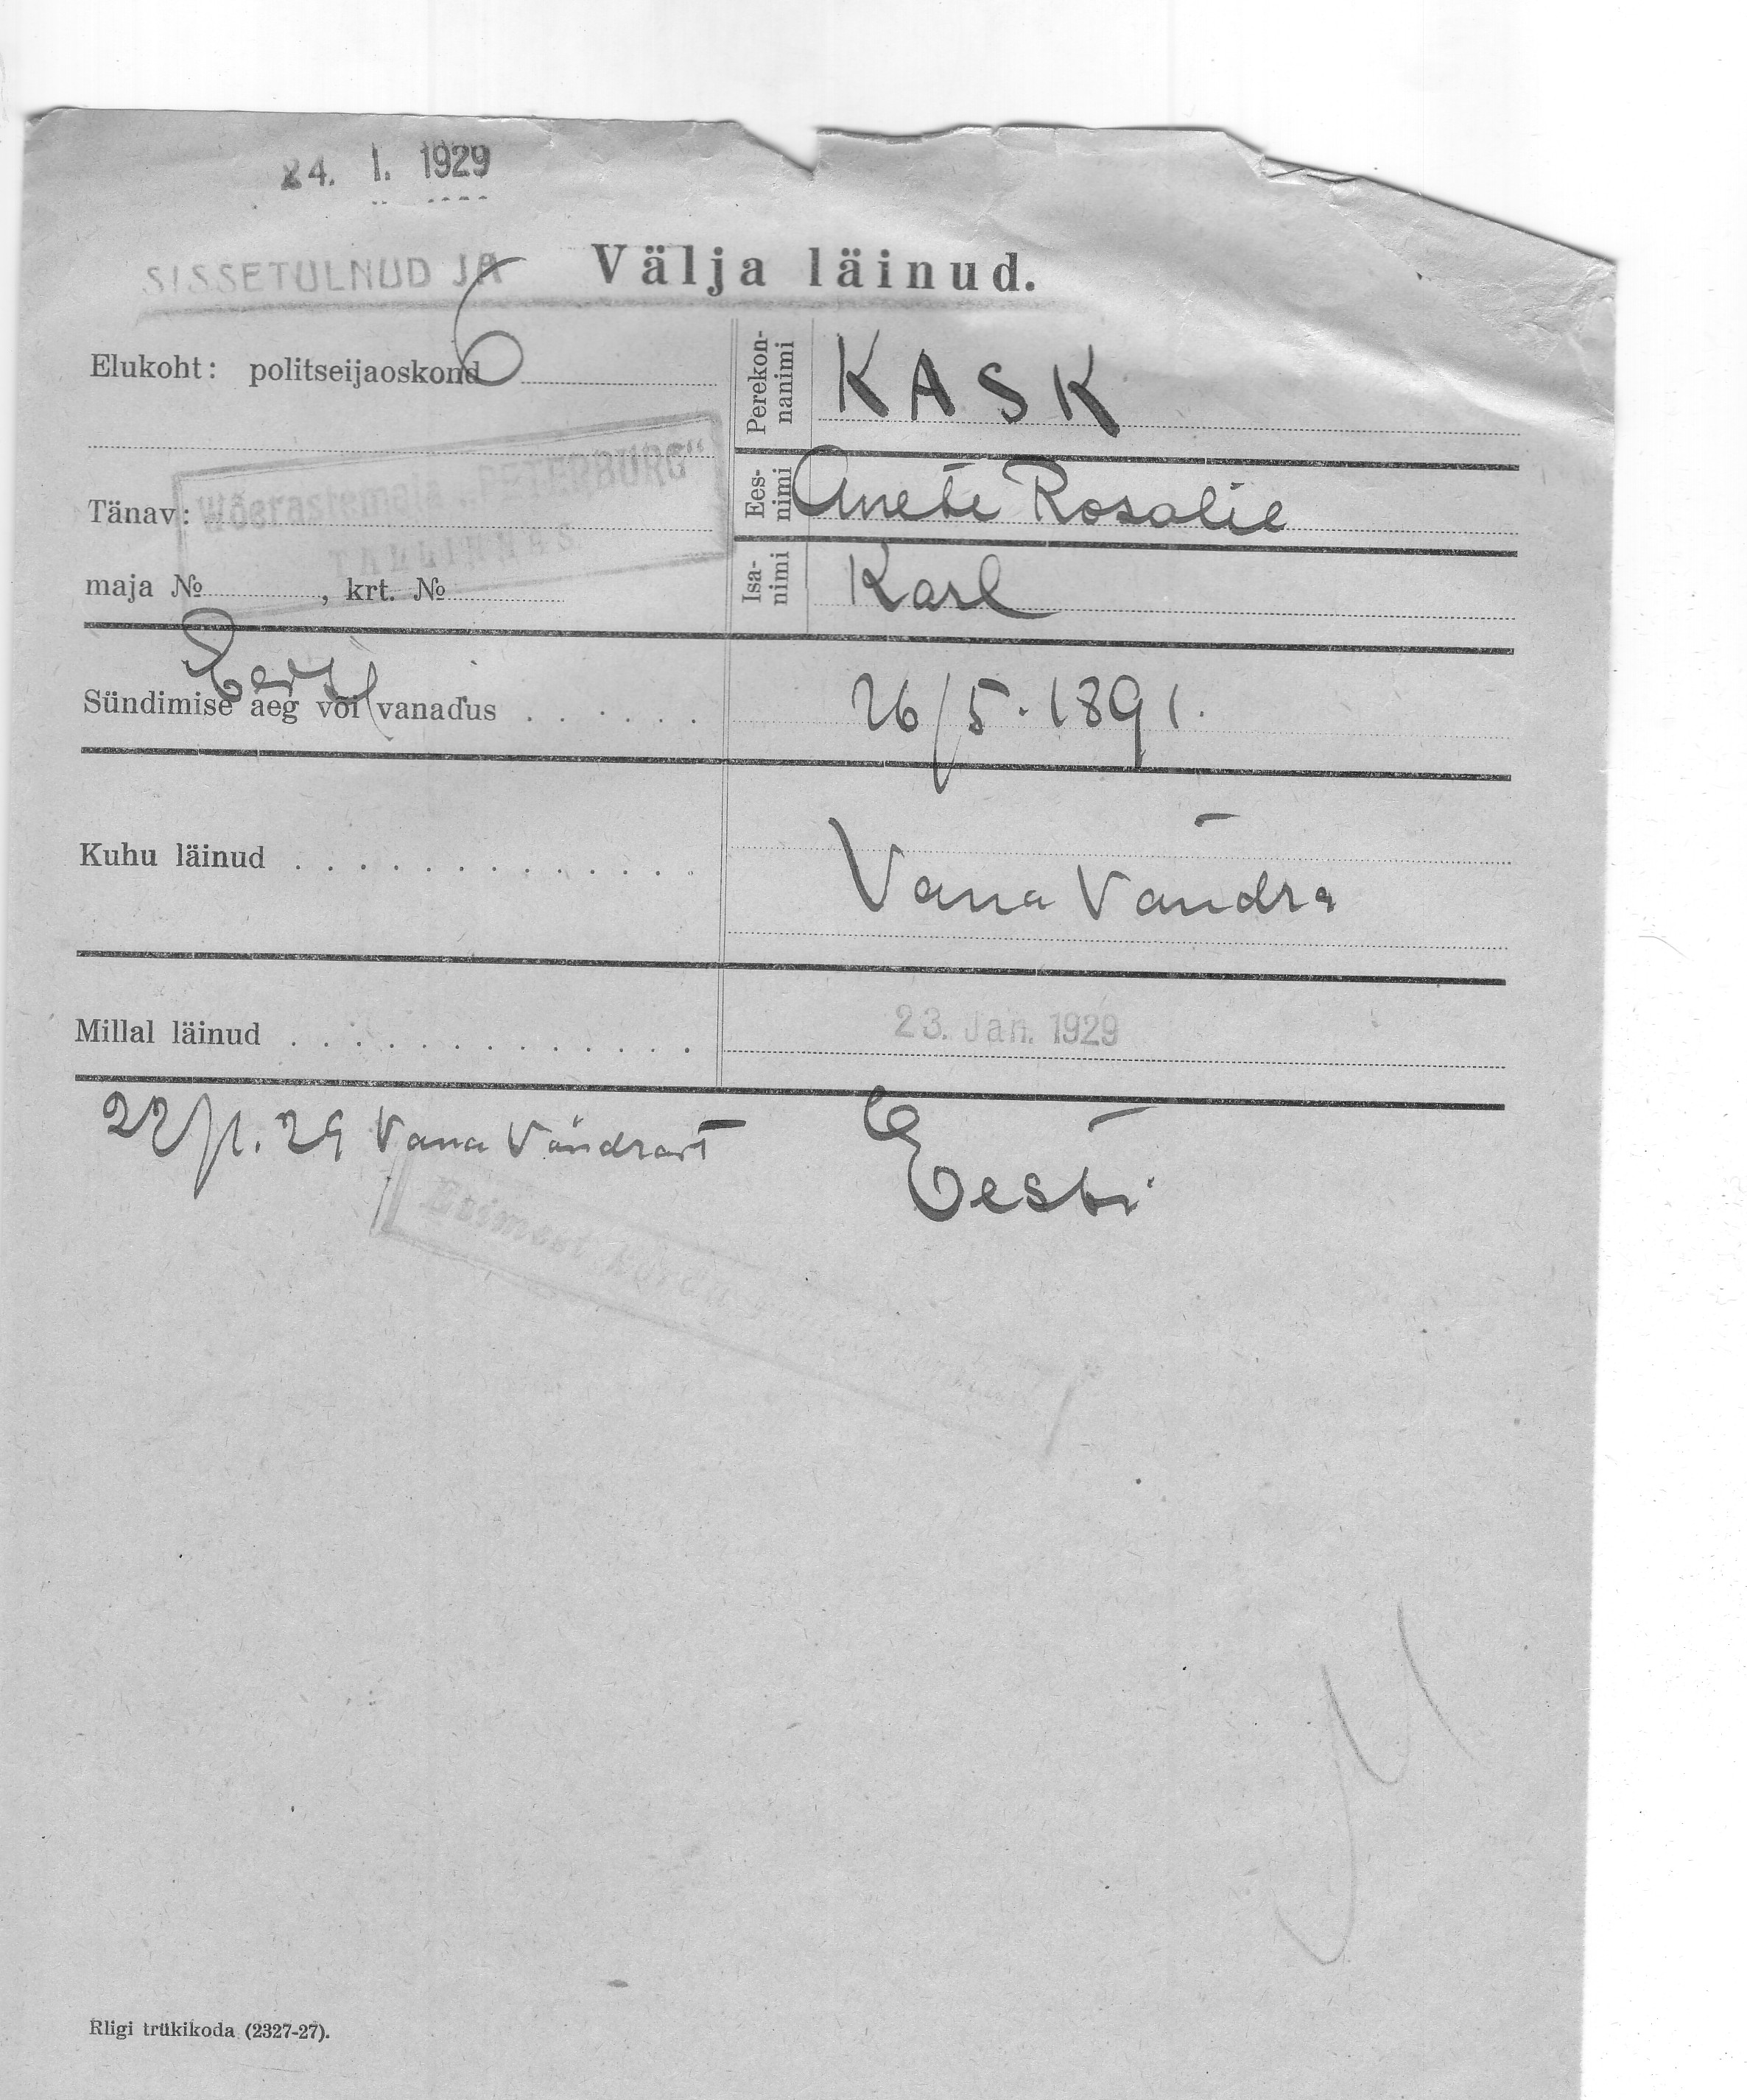 24. I. 1929
SISSETULNUD JA Välja läinud.
Elukoht: politseijaoskond 6
Perekon-
nanimi
KASK
Wõerastemaja „PETERBURG"
TALLINNAS
Ees-
nimi
Anete Rosalie
Tänav:
Isa-
nimi
Karl
maja № , krt. №
Sündimise aeg või vanadus 26/5. 1891.
Kuhu läinud Vana Vändra
Millal läinud 23. Jan. 1929
22/1. 29 Vana Vändrast
Eesti
Riigi trükikoda (2327-27).